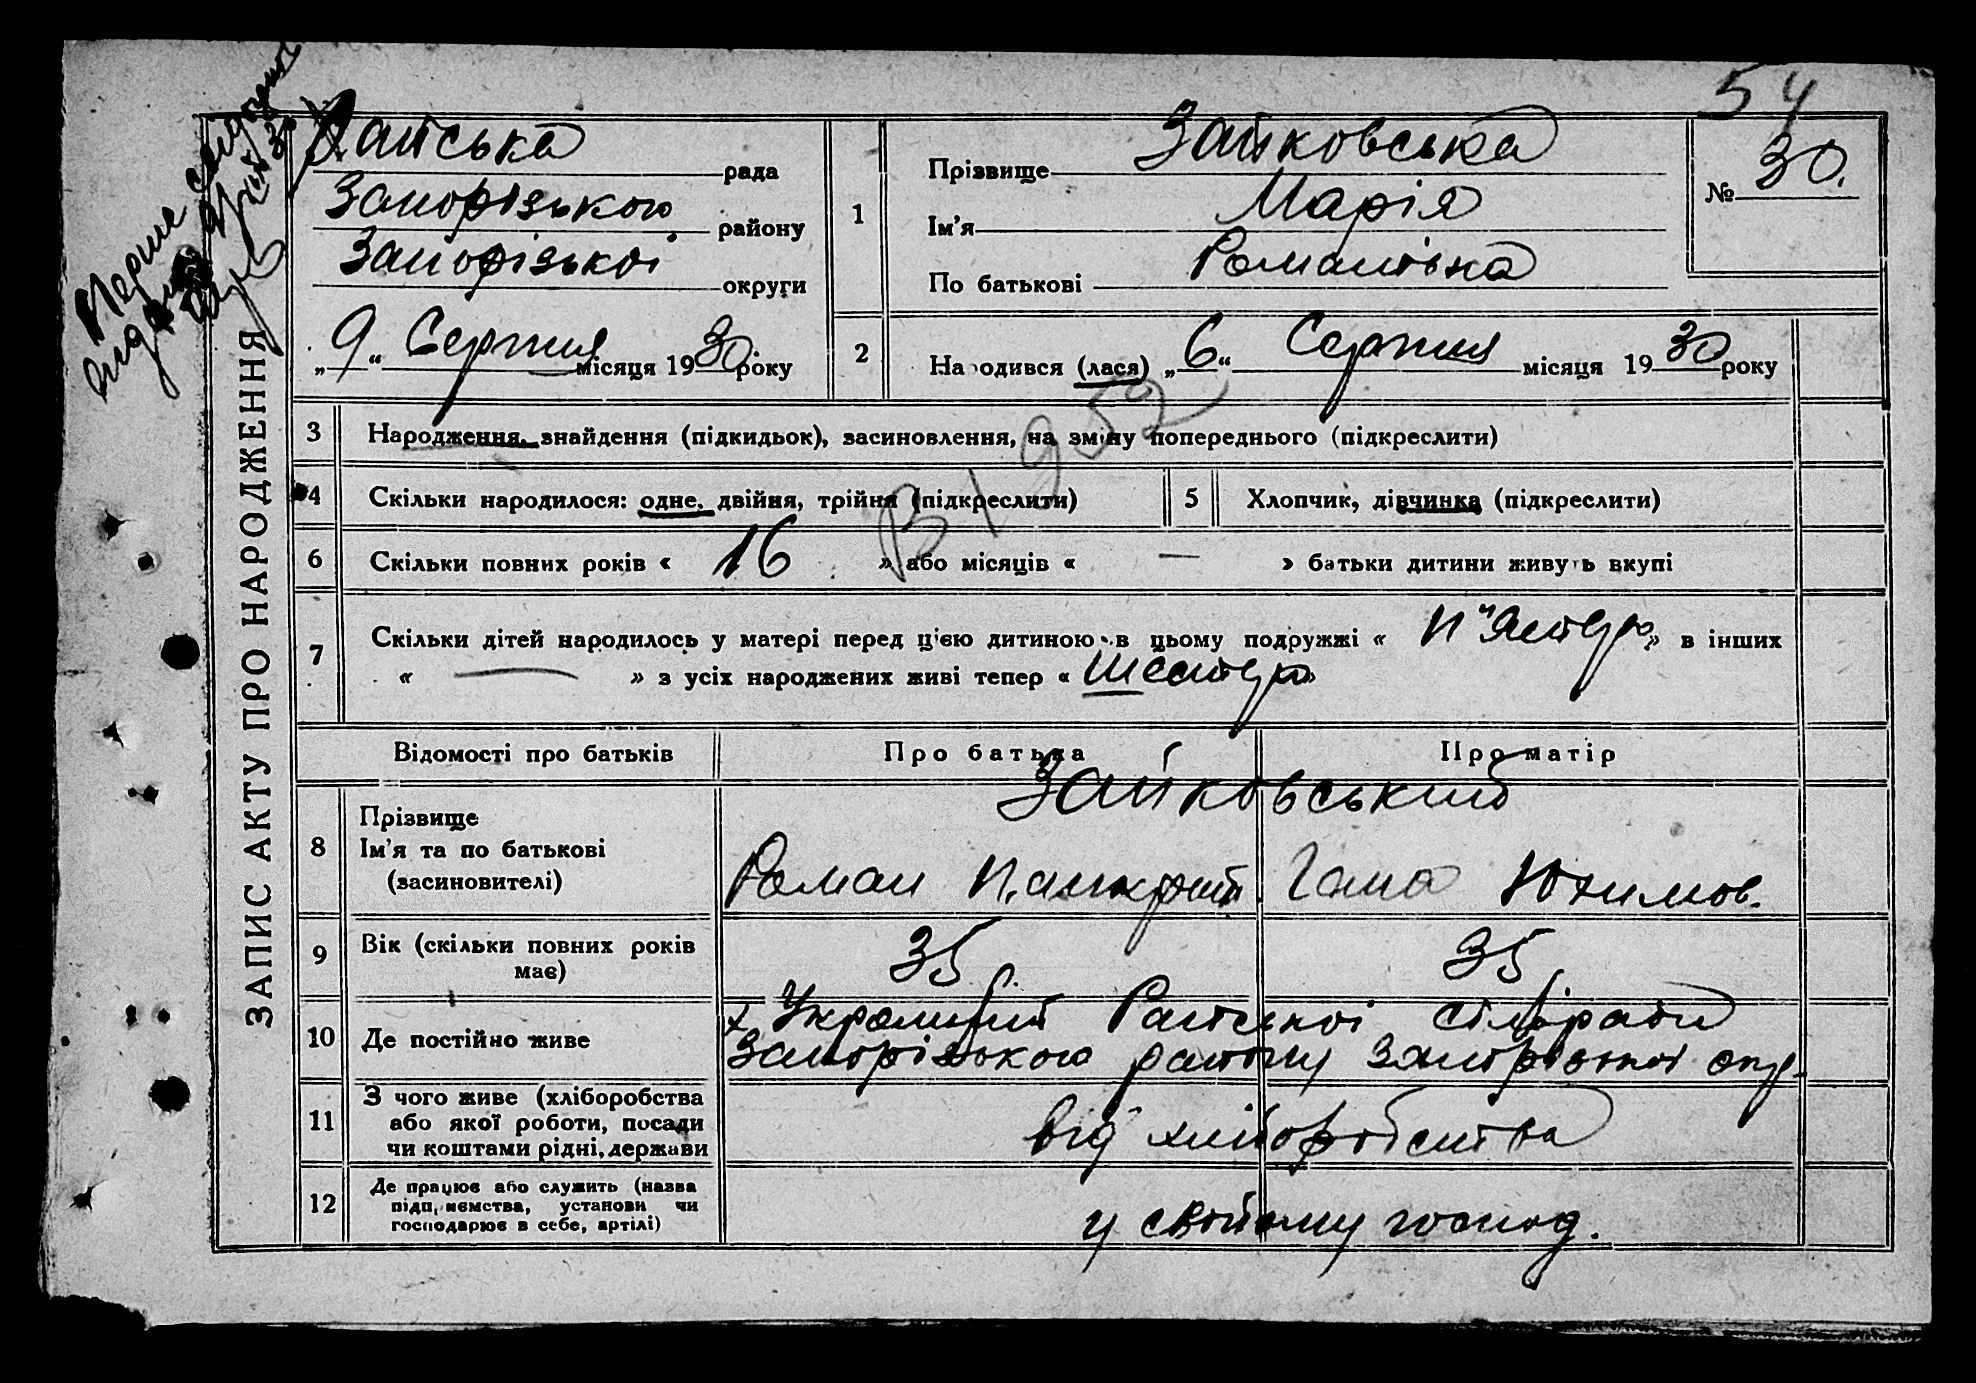 54
Райська рада
Запорізького району
Запорізької округи
„9“ Серпня місяця 1930 року
ЗАПИС АКТУ ПРО НАРОДЖЕННЯ
1
Прізвище Зайковська
Ім'я Марія
По батькові Романівна
№ 30.
2
Народився (лася) „6“ Серпня місяця 1930 року
3 Народження, знайдення (підкидьок), засиновлення, на зміну попереднього (підкреслити)
4 Скільки народилося: одне, двійня, трійня (підкреслити)
5 Хлопчик, дівчинка (підкреслити)
В 1952
6 Скільки повних років « 16 » або місяців « — » батьки дитини живуть вкупі
7 Скільки дітей народилось у матері перед цією дитиною в цьому подружжі « п'ятеро » в інших
« — » з усіх народжених живі тепер « шестеро »
Відомості про батьків Про батька Про матір
8 Прізвище Зайковський
Ім'я та по батькові
(засиновителі) Роман Панкрат. Гана Юхимов.
9 Вік (скільки повних років має) 35 35
10 Де постійно живе х. Райської сільради
Запорізького району Запорізької окр.
11 З чого живе (хліборобства
або якої роботи, посади
чи коштами рідні, держави від хліборобства
12 Де працює або служить (назва
підприємства, установи чи
господарює в себе, артілі) у свойому господ.